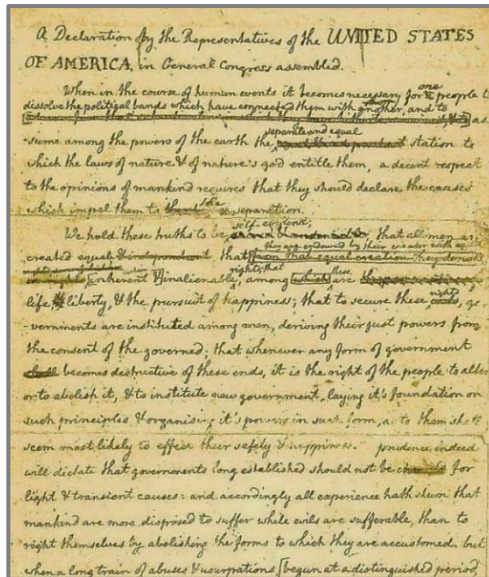 A Declaration by the Representatives of the UNITED STATES
OF AMERICA, in General Congress assembled.
When in the course of human events it becomes necessary for one people to
dissolve the political bands which have connected them with another, and to
as-
separate and equal
sume among the powers of the earth the station to
which the laws of nature & of nature's god entitle them, a decent respect
to the opinions of mankind requires that they should declare the causes
which impel them to the separation.
self-evident;
We hold these truths to be that all men are
they are endowed by their creator with
created equal & independent that from that equal creation they derive
rights; that these
inherent & inalienable among which are
life, liberty, & the pursuit of happiness; that to secure these rights, go-
vernments are instituted among men, deriving their just powers from
the consent of the governed; that whenever any form of government
shall becomes destructive of these ends, it is the right of the people to alter
or to abolish it, & to institute new government, laying it's foundation on
such principles & organising it's powers in such form, as to them shall
seem most likely to effect their safety & happiness. prudence indeed
will dictate that governments long established should not be changed for
light & transient causes: and accordingly all experience hath shewn that
mankind are more disposed to suffer while evils are sufferable, than to
right themselves by abolishing the forms to which they are accustomed. but
when a long train of abuses & usurpations [begun at a distinguished period